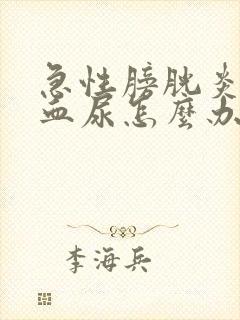 急性膀胱炎
血尿怎麼办
李海兵